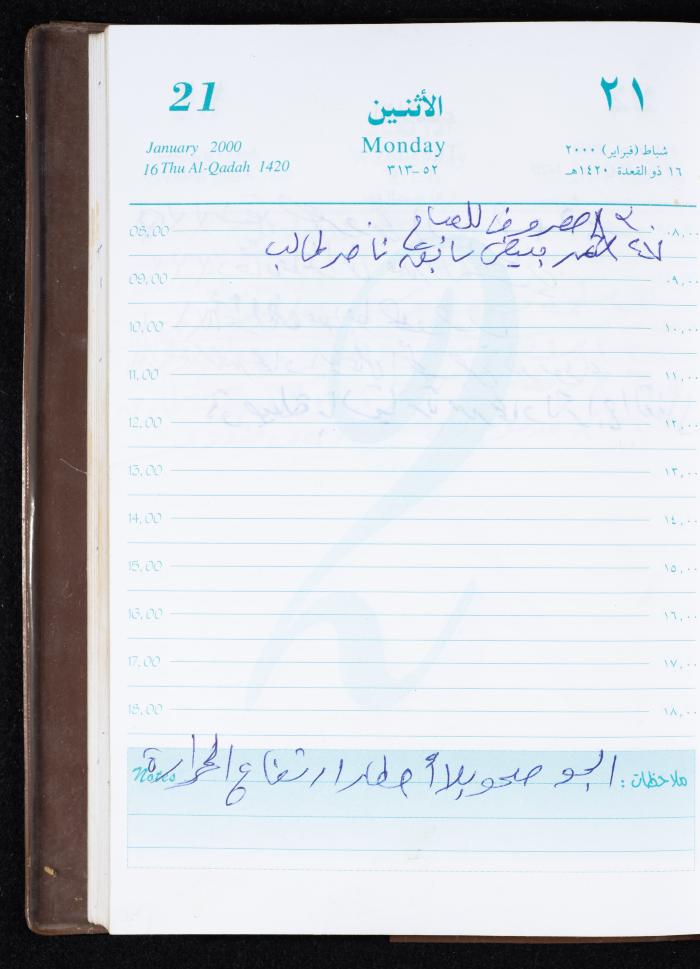 21 الأثنين ٢١
January 2000 Monday شباط (فبراير) ٢٠٠٠
16 Thu Al-Qadah 1420 ٥٢-٣١٣ ١٦ ذو القعدة ١٤٢٠هـ
08,00 مصروف ٠٨,٠٠
سائق ناصر طالب
09,00 ٠٩,٠٠
10,00 ١٠,٠٠
11,00 ١١,٠٠
12,00 ١٢,٠٠
13,00 ١٣,٠٠
14,00 ١٤,٠٠
15,00 ١٥,٠٠
16,00 ١٦,٠٠
17,00 ١٧,٠٠
18,00 ١٨,٠٠
ملاحظات : الجو صحو بلا أمطار ارتفاع الحرارة Notes